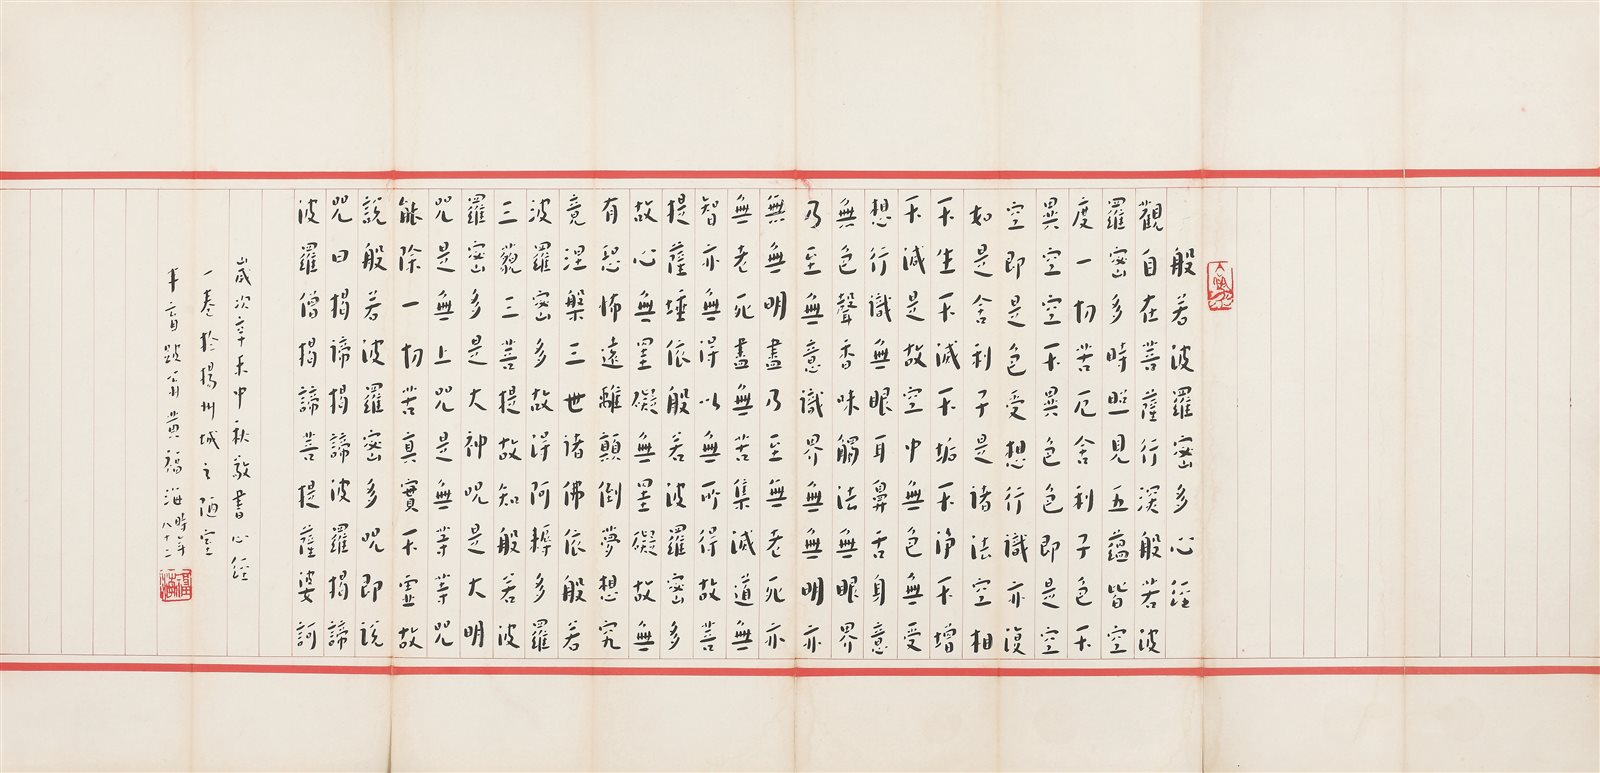 般若波羅密多心經
觀自在菩薩行深般若波
羅密多時照見五蘊皆空
度一切苦厄舍利子色不
異空空不異色色即是空
空即是色受想行識亦復
如是舍利子是諸法空相
不生不滅不垢不淨不增
不減是故空中無色無受
想行識無眼耳鼻舌身意
無色聲香味觸法無眼界
乃至無意識界無無明亦
無無明盡乃至無老死亦
無老死盡無苦集滅道無
智亦無得以無所得故菩
提薩埵依般若波羅密多
故心無罣礙無罣礙故無
有恐怖遠離顛倒夢想究
竟涅槃三世諸佛依般若
波羅密多故得阿耨多羅
三藐三菩提故知般若波
羅密多是大神咒是大明
咒是無上咒是無等等咒
能除一切苦真實不虛故
說般若波羅密多咒即說
咒曰揭諦揭諦波羅揭諦
波羅僧揭諦菩提薩婆訶
歲次辛未中秋敬書心經
一卷於揚州城之陋室
半盲跛翁黃福海時年八十二
福海